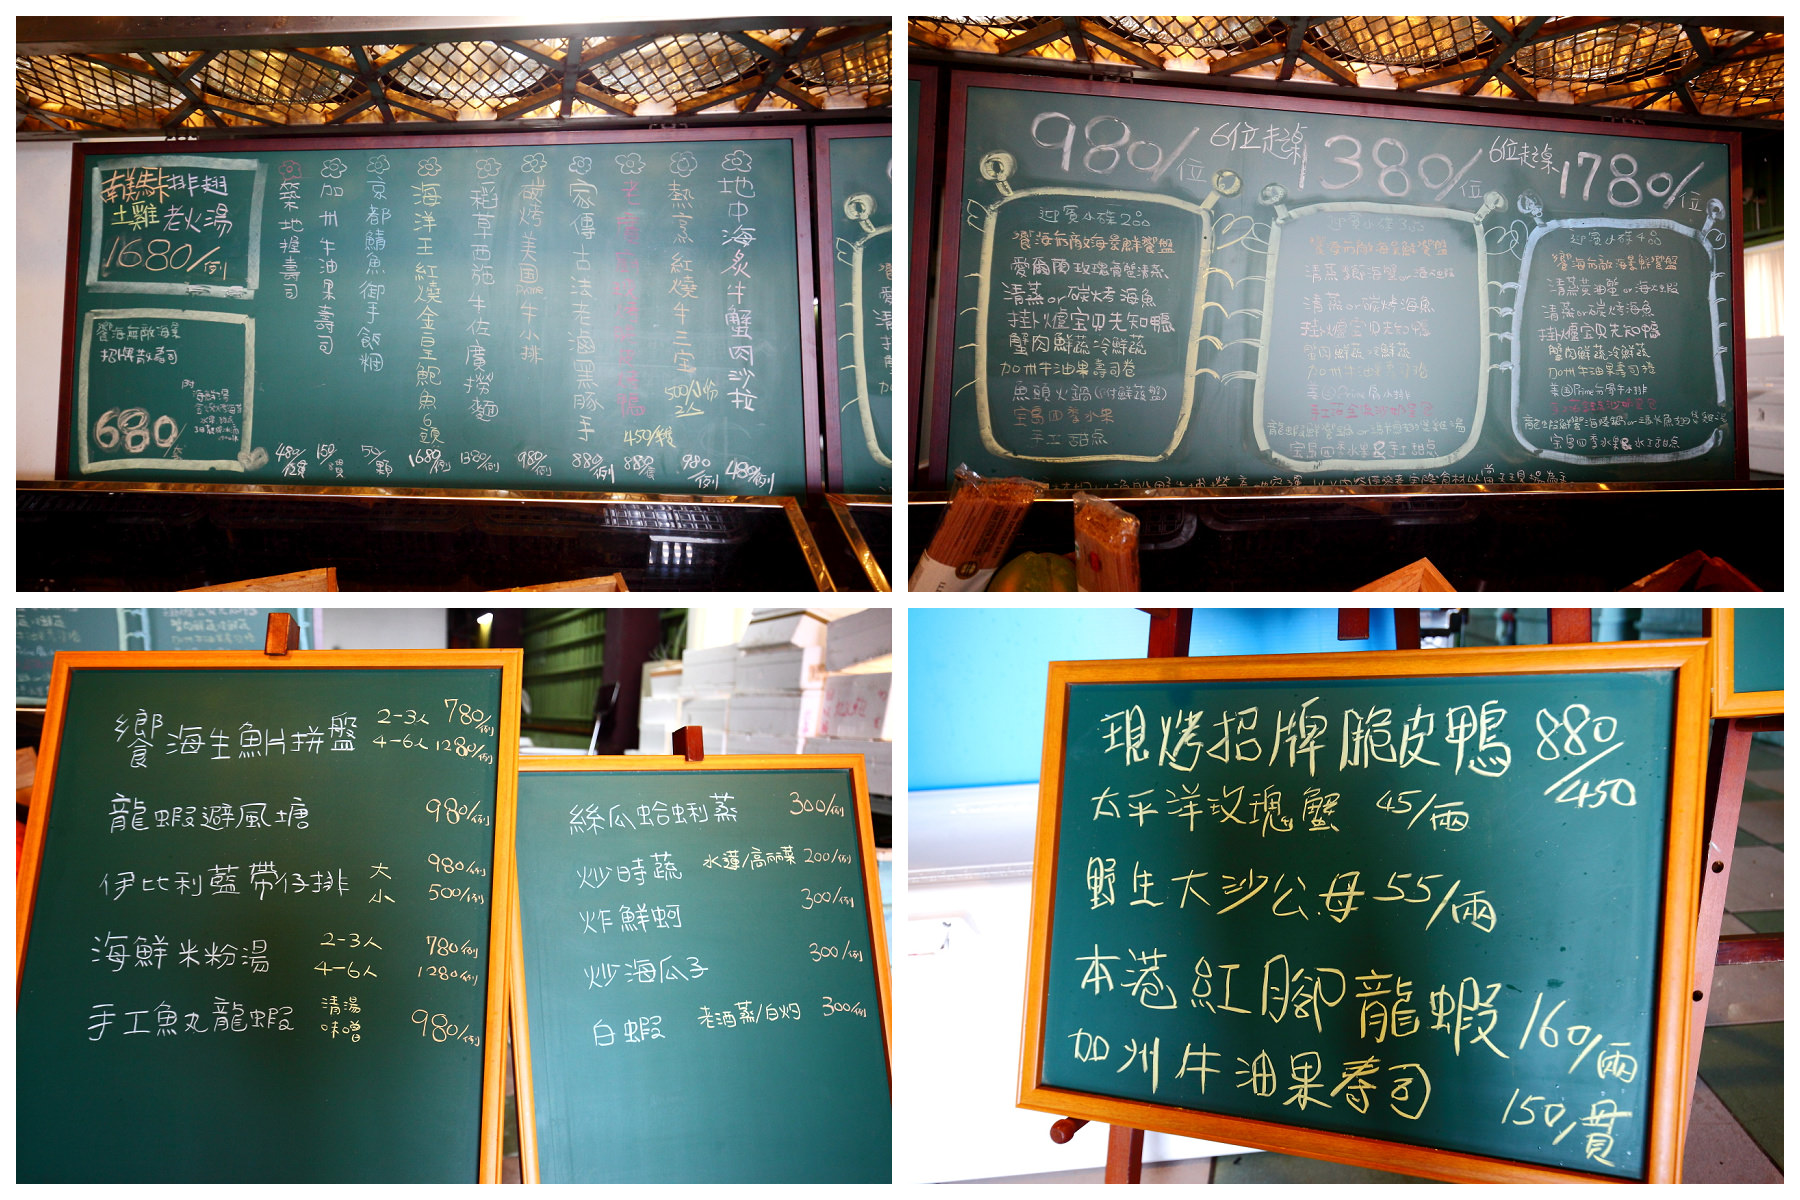 排翅
土雞 老火湯
1680/例
饗海無敵海景
招牌散壽司
680/
築地握壽司
480/
加州牛油果壽司
150/貫
京都鯖魚御手飯糰
50/顆
海洋王紅燒金皇鮑魚6頭
1680/例
稻草西施牛佐廣撈麵
1380/例
碳烤美国Prime牛小排
980/例
家傳古法老滷黑豚手
880/例
450/隻
880/隻
熱烹紅燒牛三宝
500/小份
2人
980/例
地中海炙牛蟹肉沙拉
480/例
980/位
6位起桌
1380/位
6位起桌
1780/位
迎賓小碟2品
饗海無敵海景鮮饗盤
愛爾蘭玫瑰黃蟹清蒸
清蒸or碳烤海魚
掛爐宝贝先知鴨
蟹肉鮮蔬冷鮮蔬
加州牛油果壽司卷
魚頭火鍋(附鮮蔬盤)
宝島四季水果
手工甜点
迎賓小碟3品
饗海無敵海景鮮饗盤
清蒸or碳烤海魚
掛爐宝贝先知鴨
蟹肉鮮蔬冷鮮蔬
宝島四季水果&手工甜点
迎賓小碟4品
饗海無敵海景鮮饗盤
清蒸黃油蟹or海大蝦
清蒸or碳烤海魚
掛爐宝贝先知鴨
蟹肉鮮蔬冷鮮蔬
加州牛油果壽司捲
宝島四季水果&手工甜点
饗海生魚片拼盤 2-3人 780/例
4-6人 1280/例
龍蝦避風塘 980/例
伊比利藍帶仔排 大 980/例
小 500/例
海鮮米粉湯 2-3人 780/例
4-6人 1280/例
手工魚丸龍蝦 清湯 味噌 980/例
絲瓜蛤蜊蒸 300/例
炒時蔬 水蓮/高丽菜 200/例
炸鮮蚵 300/例
炒海瓜子 300/例
白蝦 老酒蒸/白灼 300/例
現烤招牌脆皮鴨 880/450
太平洋玫瑰蟹 45/兩
野生大沙公母 55/兩
本港紅腳龍蝦 160/兩
加州牛油果壽司 150/貫